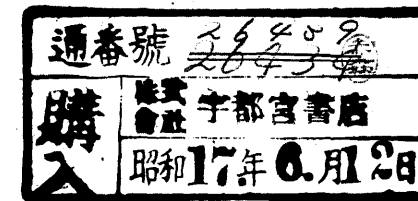 通番號 26459
26434
購入
株式會社 宇都宮書店
昭和17年6月12日